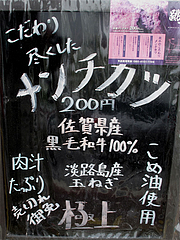 こだわり
尽くした
メンチカツ
200円
佐賀県産
黒毛和牛100%
淡路島産
玉ねぎ
こめ油使用
肉汁
たっぷり
売り切れ
御免
極上